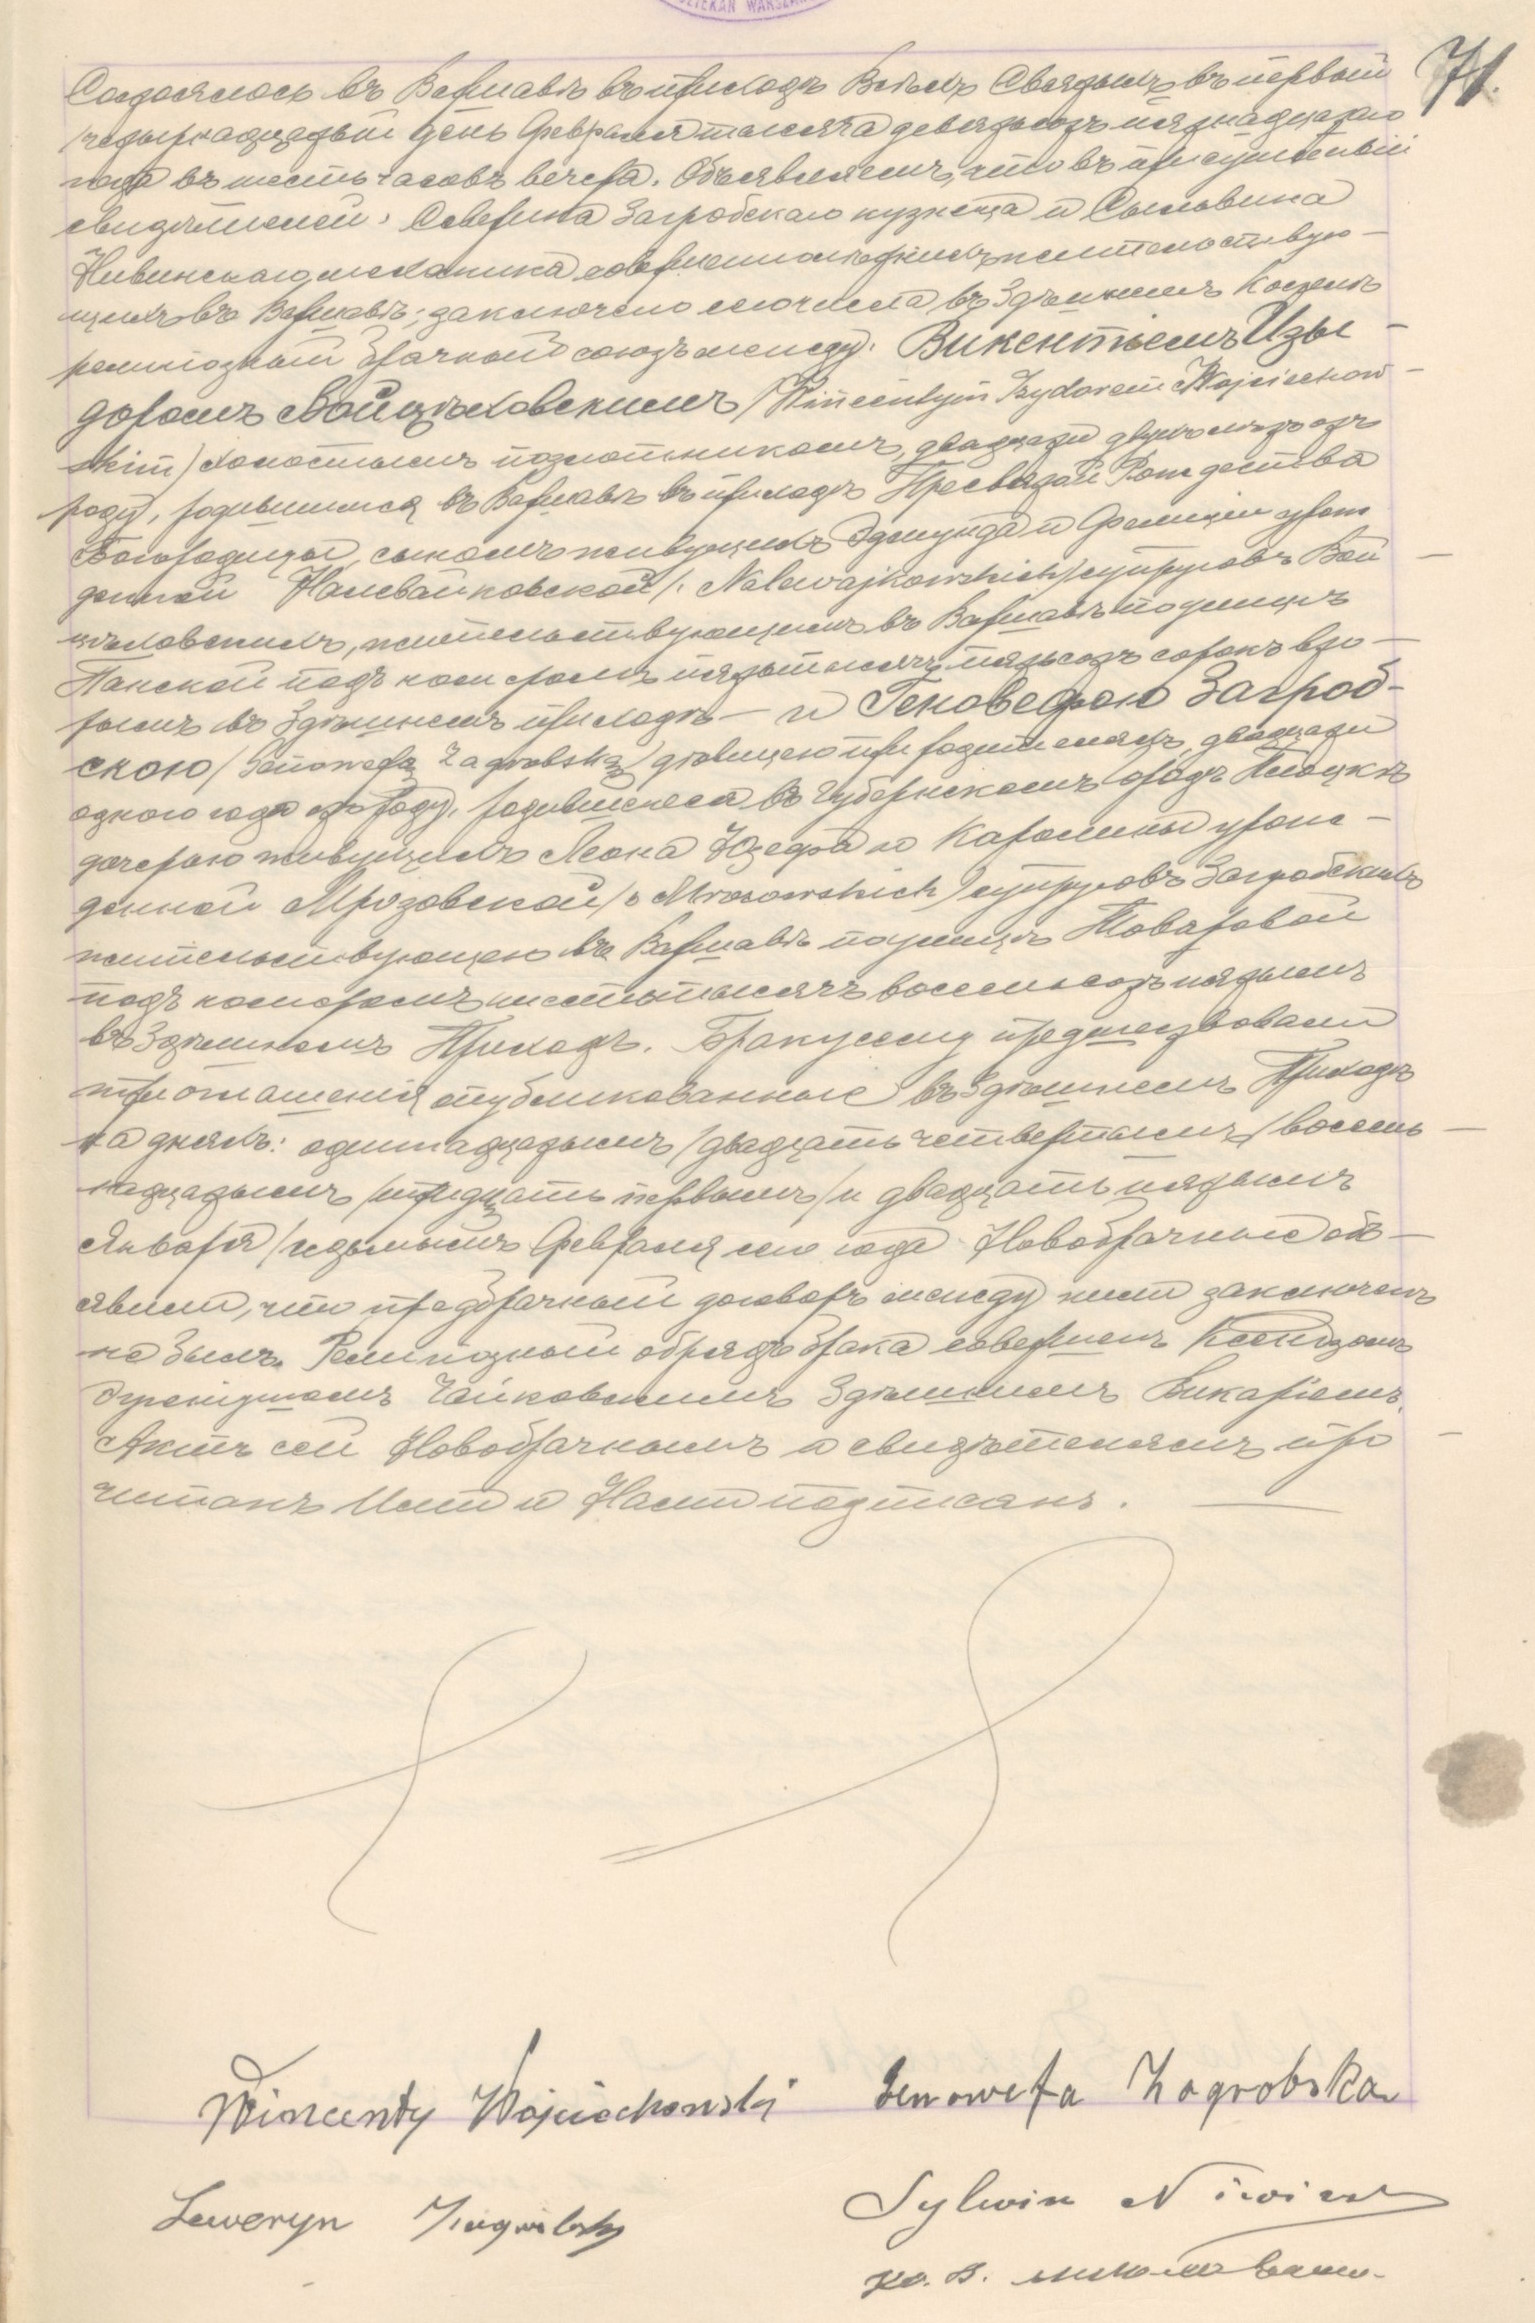 DZIEKAN WARSZAW
71.
Состоялось въ Варшавѣ въ приходѣ Всѣхъ Святыхъ въ первый
/четырнадцатый день Февраля тысяча девятьсотъ пятнадцатаго
года въ шесть часовъ вечера. Объявляемъ, что въ присутствіи
свидѣтелей: Северина Загробскаго кузнеца и Сильвина
Нивинскаго механика совершеннолѣтнихъ жительствую-
щихъ въ Варшавѣ; заключено сего числа въ здѣшнемъ Костелѣ
религіозный брачный союзъ между: Викентіемъ Изы-
доромъ Войцѣховскимъ /Wincentym Izydorem Wojciechow-
skim/ холостымъ позолотникомъ, двадцати двухъ лѣтъ отъ
роду, родившимся въ Варшавѣ въ приходѣ Пресвятой Рождества
Богородицы, сыномъ живущихъ Эдмунда и Фелиціи урож
денной Налевайковской /: Nalewajkowskich/ супруговъ Вой
цѣховскихъ, жительствующимъ въ Варшавѣ по улицѣ
Панской подъ номеромъ пятьтысячъ пятьсотъ сорокъ вто-
рымъ въ здѣшнемъ приходѣ — и Геновефою Загроб-
скою /Genowefą Zagrobską/ дѣвицею при родителяхъ, двадцати
одного года отъ роду, родившеюся въ Губернскомъ городѣ Плоцкѣ
дочерью живущихъ Леона Юзефа и Каролины урож-
денной Мрозовской /z Mrozowskich/ супруговъ Загробскихъ
жительствующею въ Варшавѣ по улицѣ Товаровой
подъ номеромъ шестьтысячъ восемьсотъ пятымъ
въ здѣшнемъ Приходѣ. Браку сему предшествовали
три оглашенія опубликованные въ здѣшнемъ Приходѣ
на дняхъ: одинадцатымъ /двадцать четвертымъ/ восем-
надцатымъ /тридцать первымъ/ и двадцать пятымъ
Января /седьмымъ Февраля сего года. Новобрачные объ-
явили, что предбрачный договоръ между ними заключенъ
не былъ. Религіозный обрядъ брака совершенъ Ксендзомъ
Чайковскимъ Здѣшнимъ Викаріемъ.
Актъ сей Новобрачнымъ и свидѣтелямъ про
читанъ Ими и Нами подписанъ.
Wincenty Wojciechowski Genowefa Zagrobska
Seweryn Zagrobski
Sylwin Niwiński